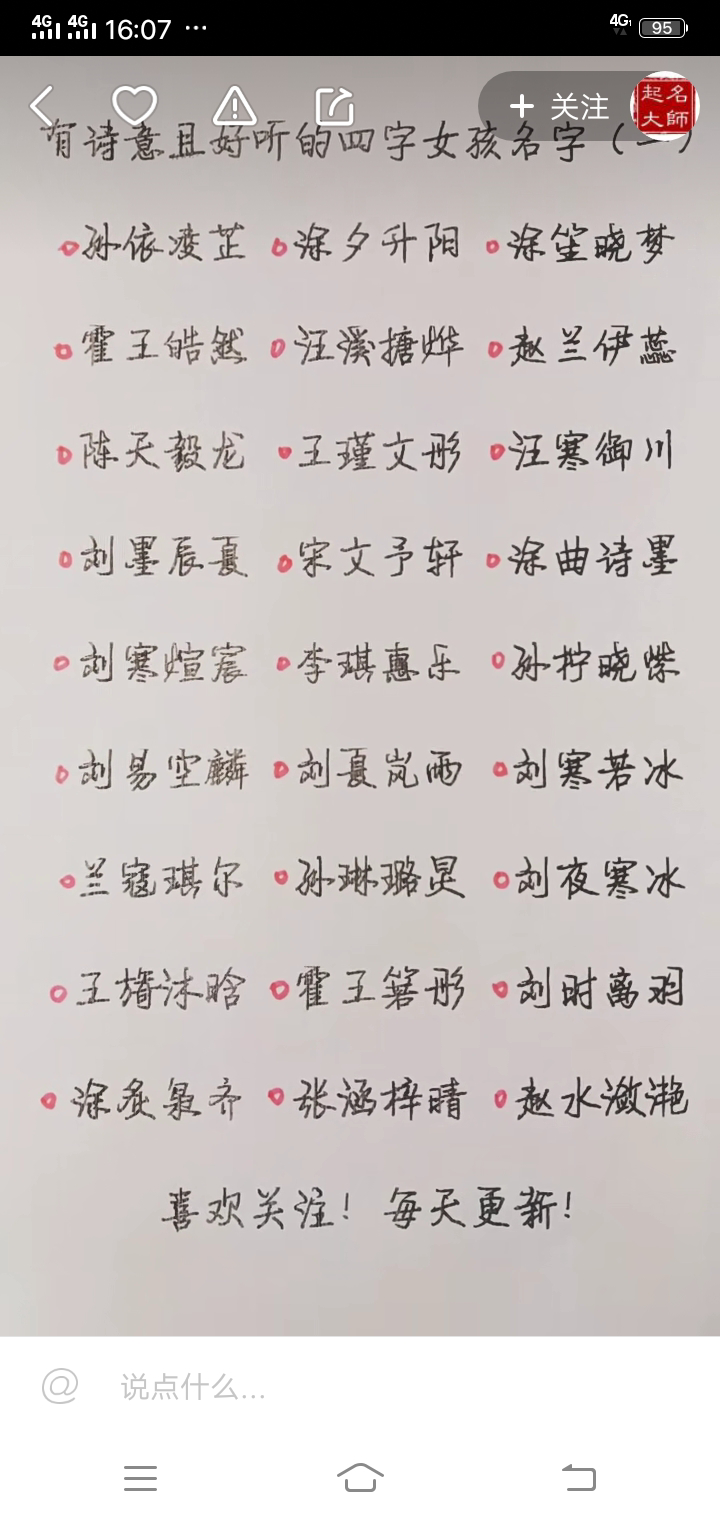 4G 4G 16:07 ··· 4G 95
+ 关注 起名大師
有诗意且好听的四字女孩名字(一)
孙依凌芷 涂夕升阳 涂笙晓梦
霍王皓然 汪溪搪烨 赵兰伊蕊
陈天毅龙 王瑾文彤 汪寒御川
刘墨辰夏 宋文予轩 涂曲诗墨
刘寒煊宸 李琪惠乐 孙柠晓紫
刘易空麟 刘夏岚雨 刘寒若冰
兰寇琪尔 孙琳璐炅 刘夜寒冰
王旖沐晗 霍王箬彤 刘时离羽
涂炙枭齐 张涵梓晴 赵水潋滟
喜欢关注! 每天更新!
@ 说点什么...